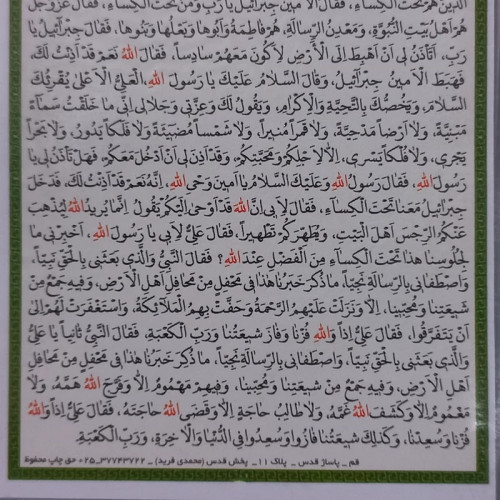 الَّذينَ هُمْ تَحْتَ الْكِساءِ، فَقالَ الْاَمينُ جِبْرآئيلُ يا رَبِّ وَمَنْ تَحْتَ الْكِساءِ، فَقالَ عَزَّوَجَلَّ
هُمْ اَهْلُ بَيْتِ النُّبُوَّةِ، وَمَعْدِنُ الرِّسالَةِ، هُمْ فاطِمَةُ وَاَبُوها وَبَعْلُها وَبَنُوها، فَقالَ جِبْرآئيلُ يا
رَبِّ، اَتَأْذَنُ لى اَنْ اَهْبِطَ اِلَى الْاَرْضِ لِاَكُونَ مَعَهُمْ سادِساً، فَقالَ اللهُ نَعَمْ قَدْ اَذِنْتُ لَكَ،
فَهَبَطَ الْاَمينُ جِبْرآئيلُ، وَقالَ السَّلامُ عَلَيْكَ يا رَسُولَ اللهِ، الْعَلِىُّ الْاَعْلى يُقْرِئُكَ
السَّلامَ، وَيَخُصُّكَ بِالتَّحِيَّةِ وَالْاِكْرامِ، وَيَقُولُ لَكَ وَعِزَّتى وَجَلالى اِنّى ما خَلَقْتُ سَمآءً
مَبْنِيَّةً، وَلا اَرْضاً مَدْحِيَّةً، وَلا قَمَراً مُنيراً، وَلا شَمْساً مُضيئَةً وَلا فَلَكاً يَدُورُ، وَلا بَحْراً
يَجْرى، وَلا فُلْكاً يَسْرى، اِلّا لِاَجْلِكُمْ وَمَحَبَّتِكُمْ، وَقَدْ اَذِنَ لى اَنْ اَدْخُلَ مَعَكُمْ، فَهَلْ تَأْذَنُ لى يا
رَسُولَ اللهِ، فَقالَ رَسُولُ اللهِ وَعَلَيْكَ السَّلامُ يا اَمينَ وَحْىِ اللهِ، اِنَّهُ نَعَمْ قَدْ اَذِنْتُ لَكَ، فَدَخَلَ
جِبْرآئيلُ مَعَنا تَحْتَ الْكِسآءِ، فَقالَ لِاَبى اِنَّ اللهَ قَدْ اَوْحى اِلَيْكُمْ يَقُولُ اِنَّما يُريدُ اللهُ لِيُذْهِبَ
عَنْكُمُ الرِّجْسَ اَهْلَ الْبَيْتِ، وَيُطَهِّرَكُمْ تَطْهيراً، فَقالَ عَلِىٌّ لِاَبى يا رَسُولَ اللهِ، اَخْبِرْنى ما
لِجُلُوسِنا هذا تَحْتَ الْكِسآءِ مِنَ الْفَضْلِ عِنْدَ اللهِ؟ فَقالَ النَّبِىُّ وَالَّذى بَعَثَنى بِالْحَقِّ نَبِيّاً،
وَاصْطَفانى بِالرِّسالَةِ نَجِيّاً، ما ذُكِرَ خَبَرُنا هذا فى مَحْفِلٍ مِنْ مَحافِلِ اَهْلِ الْاَرْضِ، وَفيهِ جَمْعٌ مِنْ
شيعَتِنا وَمُحِبّينا، اِلّا وَنَزَلَتْ عَلَيْهِمُ الرَّحْمَةُ وَحَفَّتْ بِهِمُ الْمَلآئِكَةُ، وَاسْتَغْفَرَتْ لَهُمْ اِلى
اَنْ يَتَفَرَّقُوا، فَقالَ عَلِىٌّ اِذاً وَاللهِ فُزْنا وَفازَ شيعَتُنا وَرَبِّ الْكَعْبَةِ، فَقالَ النَّبِىُّ ثانِياً يا عَلِىُّ
وَالَّذى بَعَثَنى بِالْحَقِّ نَبِيّاً، وَاصْطَفانى بِالرِّسالَةِ نَجِيّاً، ما ذُكِرَ خَبَرُنا هذا فى مَحْفِلٍ مِنْ مَحافِلِ
اَهْلِ الْاَرْضِ، وَفيهِ جَمْعٌ مِنْ شيعَتِنا وَمُحِبّينا، وَفيهِمْ مَهْمُومٌ اِلّا وَفَرَّجَ اللهُ هَمَّهُ، وَلا
مَغْمُومٌ اِلّا وَكَشَفَ اللهُ غَمَّهُ، وَلا طالِبُ حاجَةٍ اِلّا وَقَضَى اللهُ حاجَتَهُ، فَقالَ عَلِىٌّ اِذاً وَاللهِ
فُزْنا وَسُعِدْنا، وَكَذلِكَ شيعَتُنا فازُوا وَسُعِدُوا فِى الدُّنْيا وَالْاخِرَةِ، وَرَبِّ الْكَعْبَةِ.
قم _ پاساژ قدس _ پلاک ۱۱ _ پخش قدس (محمدی فرید) _ ۰۲۵-۳۷۷۴۳۷۲۲ حق چاپ محفوظ